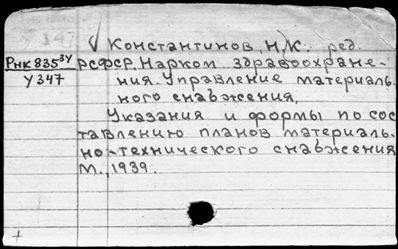 347
√ Константинов, Н.К. ред.
РнК 835³ᵞ РСФСР. Нарком. здравоохране-
У347 ния. Управление материаль-
ного снабжения.
Указания и формы по сос-
тавлению планов материаль-
но-технического снабжения
М., 1939.
+